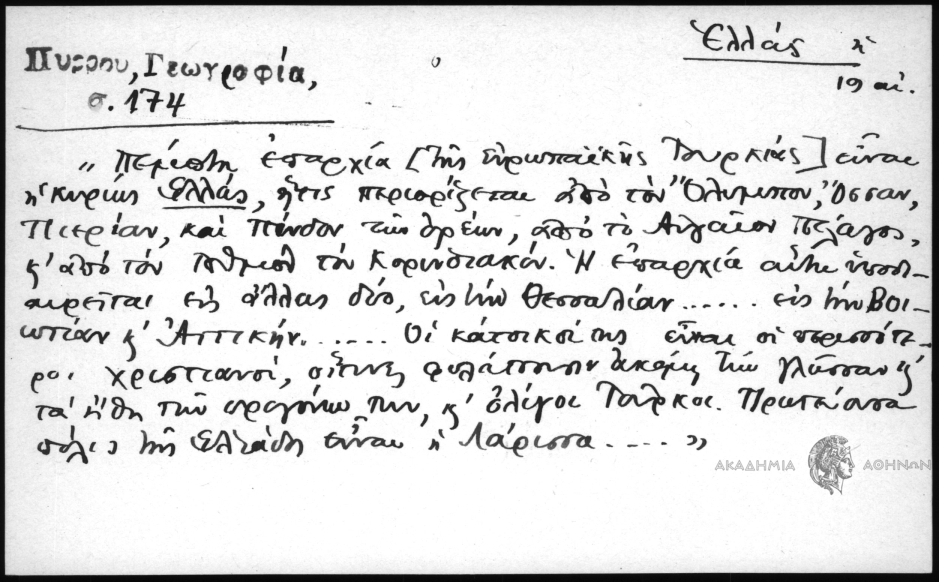 Ἑλλάς ἡ
19 αἰ.
Πύρρου, Γεωγραφία,
σ. 174
„ Πέμπτη ἐπαρχία [τῆς εὐρωπαϊκῆς Τουρκίας] εἶναι
ἡ κυρίως Ἑλλάς, ἥτις περιορίζεται ἀπὸ τὸν Ὄλυμπον, Ὄσσαν,
Πιερίαν, καὶ Πίνδον τῶν ὀρέων, ἀπὸ τὸ Αἰγαῖον Πέλαγος,
κ' ἀπὸ τὸν Ἰσθμὸν τὸν Κορινθιακόν. Ἡ ἐπαρχία αὕτη ὑποδι-
αιρεῖται εἰς ἄλλας δύο, εἰς τὴν Θεσσαλίαν...... εἰς τὴν Βοι-
ωτίαν κ' Ἀττικήν....... Οἱ κάτοικοί της εἶναι οἱ περισσότε-
ροι χριστιανοί, οἵτινες φυλάττουσιν ἀκόμη τὴν γλῶσσαν κ'
τὰ ἤθη τῶν προγόνων των, κ' ὀλίγοι Τοῦρκοι. Πρωτεύουσα
πόλις τῆς Ἑλλάδος εἶναι ἡ Λάρισσα..... »
ΑΚΑΔΗΜΙΑ ΑΘΗΝΩΝ